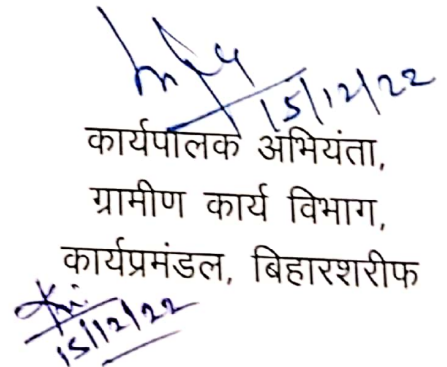 15/12/22
कार्यपालक अभियंता,
ग्रामीण कार्य विभाग,
कार्यप्रमंडल, बिहारशरीफ
15/12/22